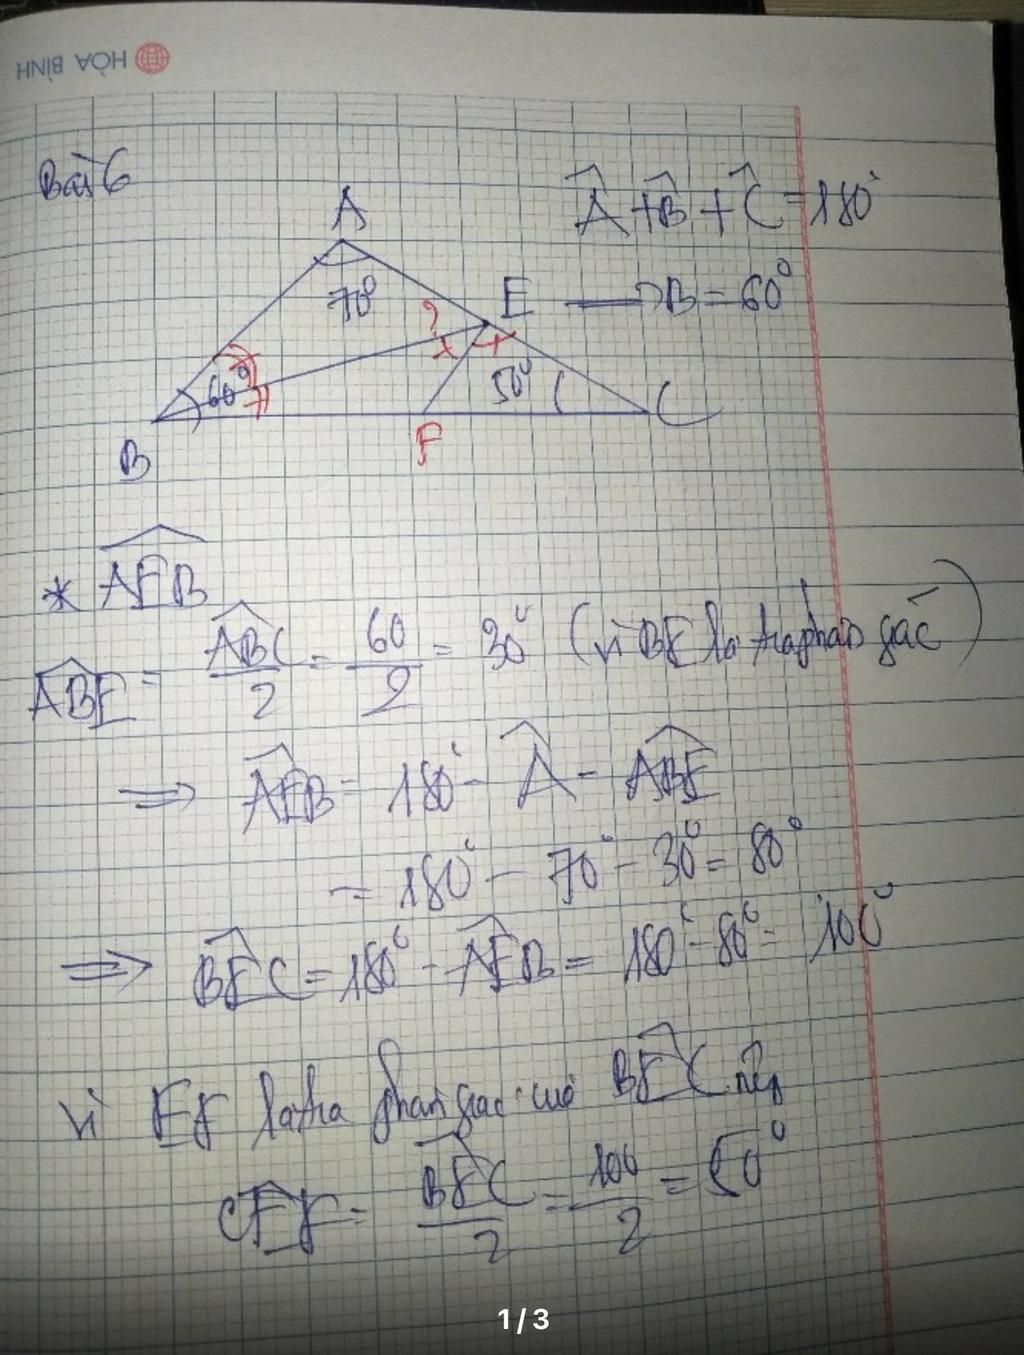 HÒA BÌNH
Bài 6
Â + B̂ + Ĉ = 180°
→ B = 60°
A
70°
E
?
60°
50°
C
B
F
* AEB
ABE = ABC/2 = 60/2 = 30° (vì BE là tia phân giác)
⇒ AEB = 180° - Â - ABE
= 180° - 70° - 30° = 80°
⇒ BEC = 180° - AEB = 180° - 80° = 100°
Vì EF là tia phân giác của BEC nên
CEF = BEC/2 = 100/2 = 50°
1/3